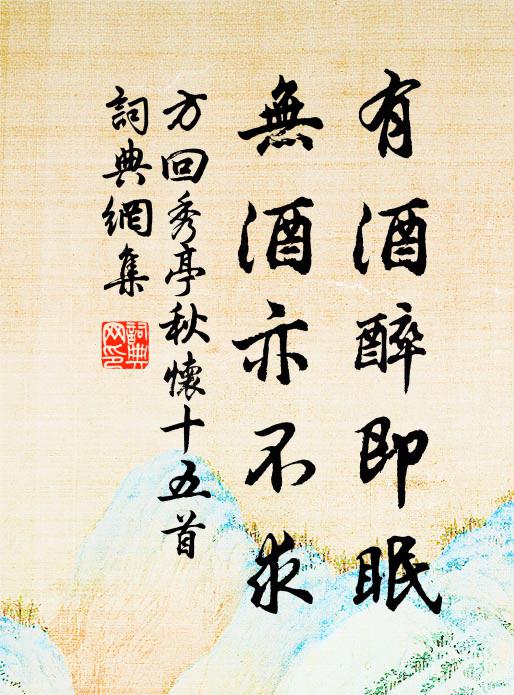 有酒醉即眠
無酒亦不求
方回秀亭秋懷十五首
詞典網集
詞典網印